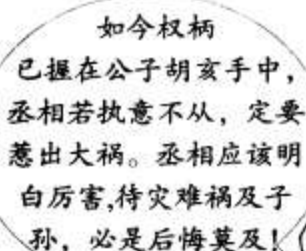 如今权柄
已握在公子胡亥手中，
丞相若执意不从，定要
惹出大祸。丞相应该明
白厉害,待灾难祸及子
孙，必是后悔莫及！